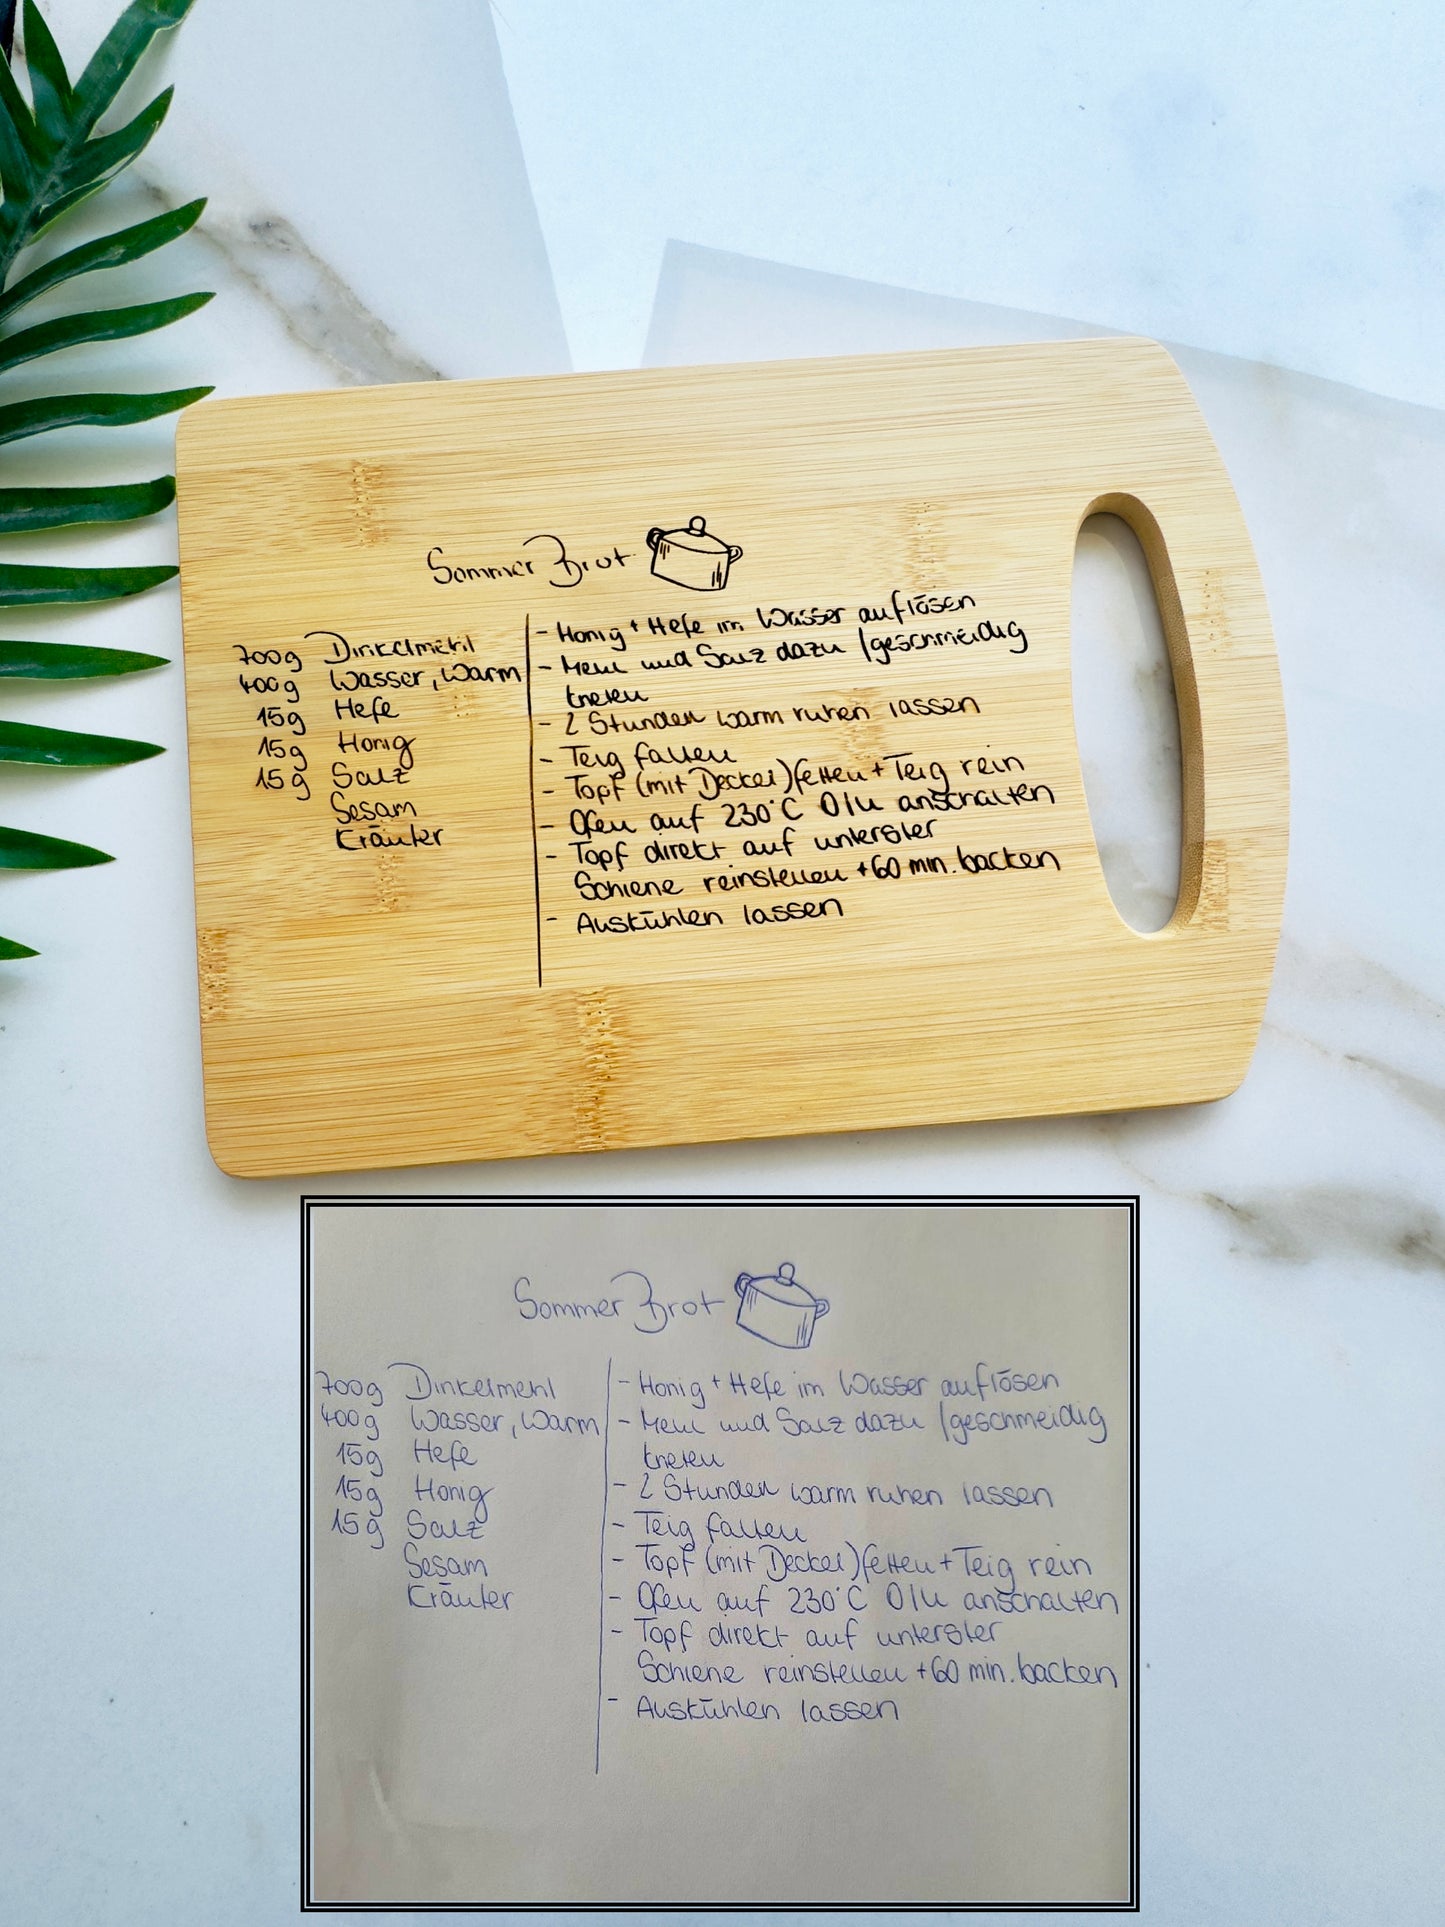 Sommer Brot
700g Dinkelmehl
400g Wasser, warm
15g Hefe
15g Honig
15g Salz
Sesam
Kräuter
- Honig + Hefe im Wasser auflösen
- Mehl und Salz dazu / geschmeidig
kneten
- 2 Stunden warm ruhen lassen
- Teig falten
- Topf (mit Deckel) fetten + Teig rein
- Ofen auf 230°C O/U anschalten
- Topf direkt auf unterster
Schiene reinstellen + 60 min. backen
- Auskühlen lassen
Sommer Brot
700g Dinkelmehl
400g Wasser, warm
15g Hefe
15g Honig
15g Salz
Sesam
Kräuter
- Honig + Hefe im Wasser auflösen
- Mehl und Salz dazu / geschmeidig
kneten
- 2 Stunden warm ruhen lassen
- Teig falten
- Topf (mit Deckel) fetten + Teig rein
- Ofen auf 230°C O/U anschalten
- Topf direkt auf unterster
Schiene reinstellen + 60 min. backen
- Auskühlen lassen